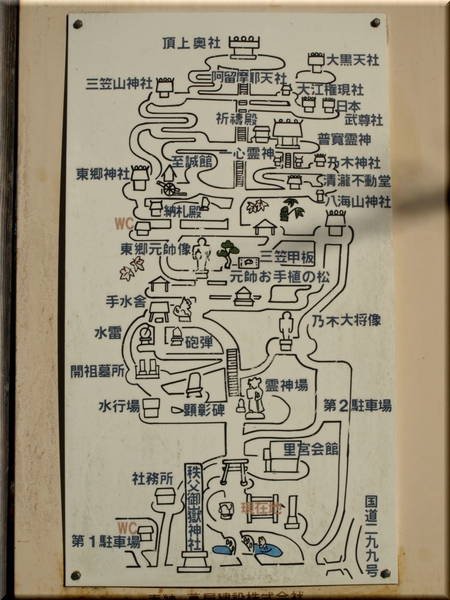 頂上奥社
大黒天社
阿留摩耶天社
三笠山神社
大江権現社
日本
武尊社
祈禱殿
普寛霊神
心霊神
至誠館
乃木神社
東郷神社
清瀧不動堂
八海山神社
納札殿
WC
東郷元帥像
三笠甲板
元帥お手植の松
手水舎
乃木大将像
水雷
砲弾
開祖墓所
霊神場
水行場
顕彰碑
第2駐車場
里宮会館
社務所
秩父御嶽神社
現在地
国道二九九号
WC
第1駐車場